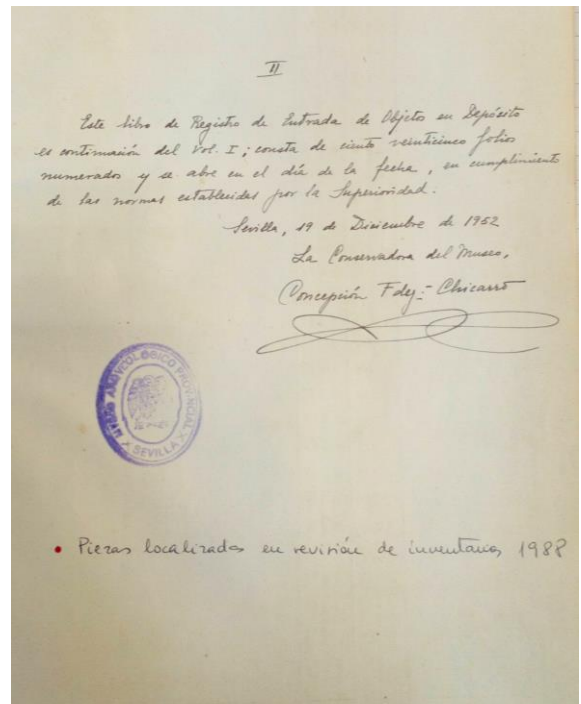 II
Este libro de Registro de Entrada de Objetos en Depósito
es continuación del Vol. I; consta de ciento veinticinco folios
numerados y se abre en el día de la fecha, en cumplimiento
de las normas establecidas por la Superioridad.
Sevilla, 19 de Diciembre de 1952
La Conservadora del Museo,
Concepción Fdez-Chicarro
MVSEO ARQVEOLOGICO PROVINCIAL
SEVILLA
• Piezas localizadas en revisión de inventarios 1988